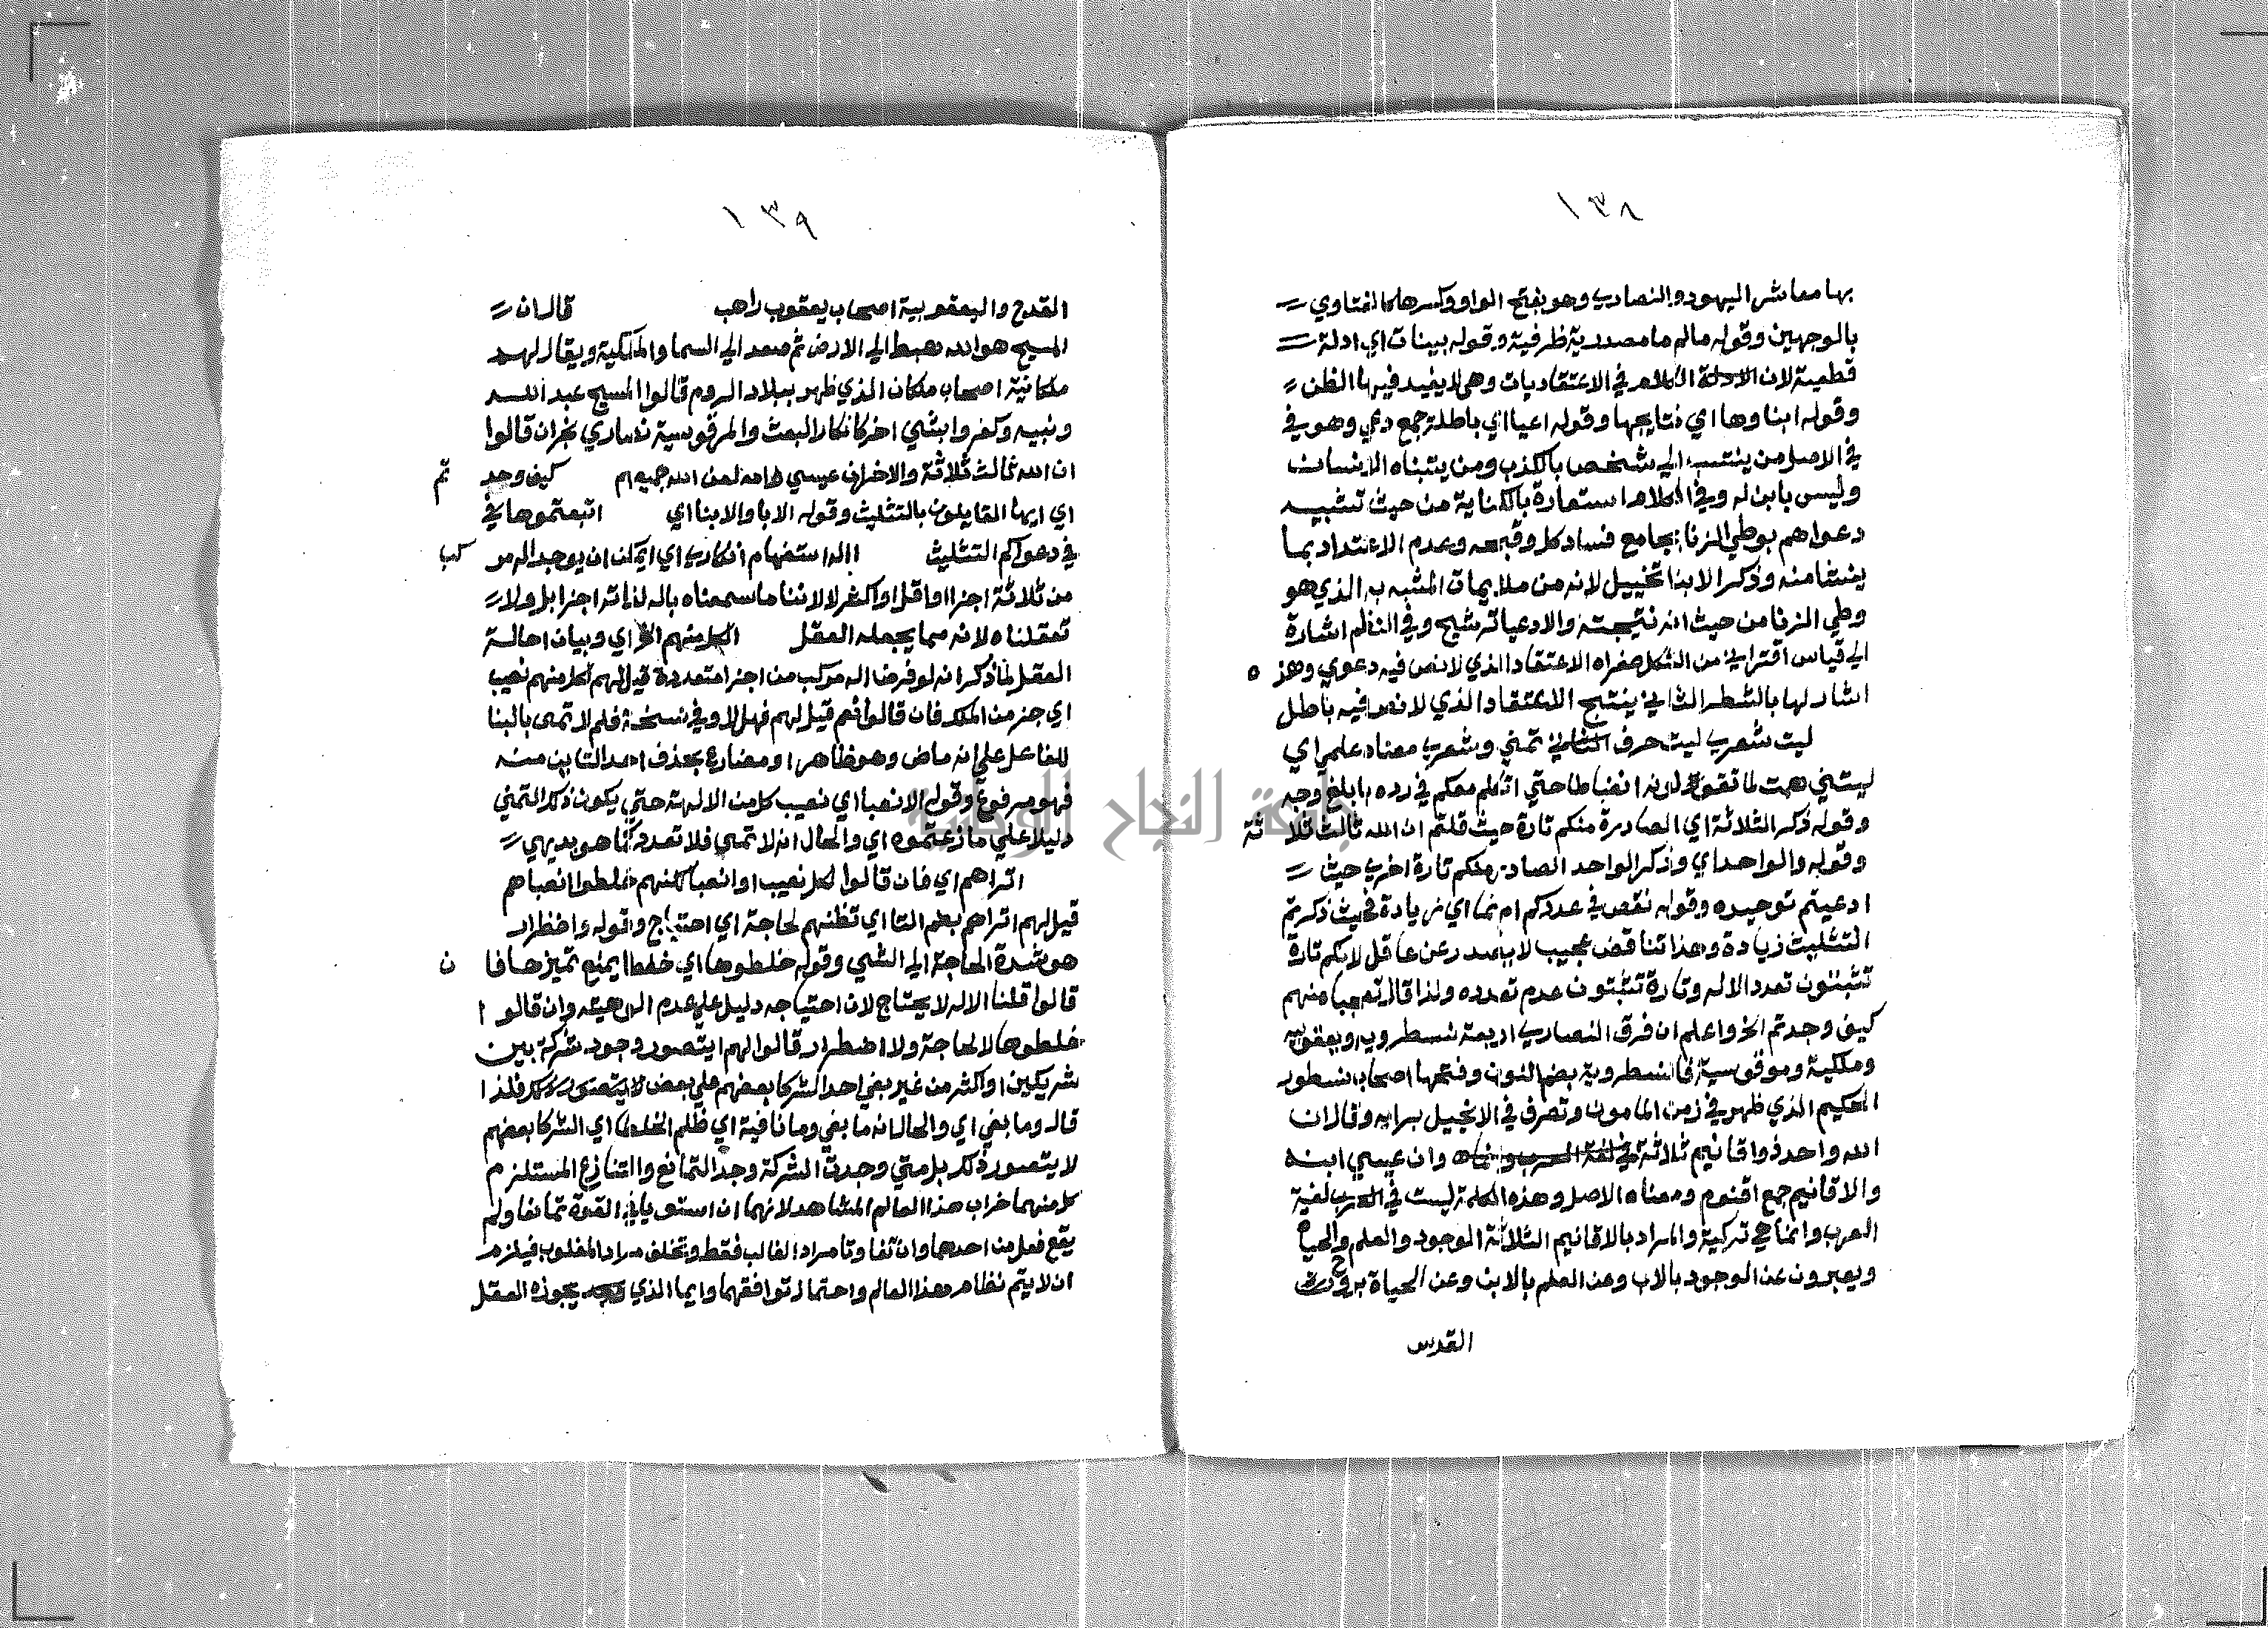 ١٣٨
بها معاشر اليهود والنصاري وهو بفتح الواو وكسرها كالفتاوي
بالوجهين وقوله مالم ما مصدرية ظرفية وقوله بينات اي ادلة
قطعية لان الادلة الكلام في الاعتقاديات وهي لا يفيد فيها الظن
وقوله ابناوها اي نتايجها وقوله ادعيا اي باطلة جمع دعي وهو في
في الاصل من ينتسب الي شخص بالكذب ومن يتبناه الانسان
وليس بابن له وفي الكلام استعارة بالكناية من حيث تشبيه
دعواهم بوطي الزنا بجامع فساد كل وقبحه وعدم الاعتداد بما
ينشا منه وذكر الابنا تخييل لانه من ملايمات المشبه به الذي هو
وطي الزنا من حيث انه نتيجته والادعيا ترشيح وفي النظم اشارة
الي قياس اقتراني من الشكل صغراه الاعتقاد الذي لا نص فيه دعوي وهذه
اشار لها بالشطر الثاني ينتج الاعتقاد الذي لا نص فيه باطل
ليت شعري ليت حرف تمني وشعري معناه علمي اي
ليتني همت لما تقولونه انضباطا حتي اتكلم معكم في رده بابلغ وجه
وقوله ذكر الثلاثة اي الصادرة منكم تارة حيث قلتم ان الله ثالث ثلاثة
وقوله والواحد اي وذكر الواحد الصادر منكم تارة اخري حيث
ادعيتم توحيده وقوله نقص في عددكم ام نما اي زيادة فحيث ذكرتم
التثليث زيادة وهذا تناقض عجيب لا يصدر عن عاقل لانكم تارة
تثبتون تعدد الاله وتارة تثبتون عدم تعدده ولذا قال تعجبا منهم
كيف وجدتم الخ واعلم ان فرق النصاري اربعة نسطروية ويعقوبية
وملكية ومرقوسية فالنسطروية بضم النون وفتحها اصحاب نسطور
الحكيم الذي ظهر في زمن المامون وتصرف في الانجيل برايه وقال ان
الله واحد ذو اقانيم ثلاثة وان عيسي ابنه
والاقانيم جمع اقنوم ومعناه الاصل وهذه الكلمة ليست في العرب لغية
العرب وانما هي تركية والمراد بالاقانيم الثلاثة الوجود والعلم والحياة
ويعبرون عن الوجود بالاب وعن العلم بالابن وعن الحياة بروح
القدس
١٣٩
القدح واليعقوبية اصحاب يعقوب راهب قال ان
المسيح هو الله هبط الي الارض ثم صعد الي السما والملكية ويقال لهم
ملكانية اصحاب ملكان الذي ظهر ببلاد الروم قالوا المسيح عبد الله
ونبيه وكفروا بشي اخر كانكار البعث والمرقوسية نصاري نجران قالوا
ان الله ثالث ثلاثة والاخران عيسي وامه لعن الله جميعهم كيف وجدتم
اي ايها القايلون بالتثليث وقوله الابا والابنا اي اتبعتموها في
في دعواكم التثليث االه استفهام انكاري اي ايمكن ان يوجد اله مركب
من ثلاثة اجزا او اقل او اكثر لا لاننا ما سمعناه باله لذاته اجزا بل ولا
تعقلناه لانه مما يحيله العقل الكل منهم الخ اي وبيان احالة
العقل لما ذكر انه لو فرض اله مركب من اجزا متعددة قيل لهم الكل منهم نصيب
اي جزء من الملك فان قالوا نعم قيل لهم فهل لا وفي نسخة فلم لا تمي بالبنا
للفاعل علي انه ماض وهو ظاهر او مضارع بحذف احد التاين منه
فهو مرفوع وقوله الانصبا اي نصيب كل من الالهة حتي يكون ذلك التمني
دليلا علي ما زعتموه اي والحال انه لا تمي فلا تعدد كما هو بديهي
اتراهم اي فان قالوا لكل نصيب او انصبا لكنهم خلطوا انصباهم
قيل لهم اتراهم بضم التا اي تظنهم لحاجة اي احتياج وقوله واضطرار
هو شدة الحاجة الي الشي وقوله خلطوها اي خلطا يمنع تميزها فان
قالوا قلنا الاله لا يحتاج لان احتياجه دليل علي عدم الوهيته وان قالوا
خلطوها لا لحاجة ولا اضطرار قالوا لهم ايتصور وجود شركة بين
شريكين او اكثر من غير بغي احد الشركا بعضهم علي بعض لا يتصور ذلك فلذا
قال وما بغي اي والحال انه ما بغي وما نافية اي ظلم الخلطا اي الشركا بعضهم
لا يتصور ذلك بل متي وجدت الشركة وجد التمانع والتنازع المستلزم
كل منهما خراب هذا العالم المشاهد لانهما ان استويا في القوة تمانعا ولم
يقع فعل من احدهما وان تفاوتا مراد الغالب فقط وتخلف مراد المغلوب فيلزم
ان لا يتم نظام هذا العالم واحتمال توافقهما وايما الذي يجوزه العقل
جامعة النجاح الوطنية